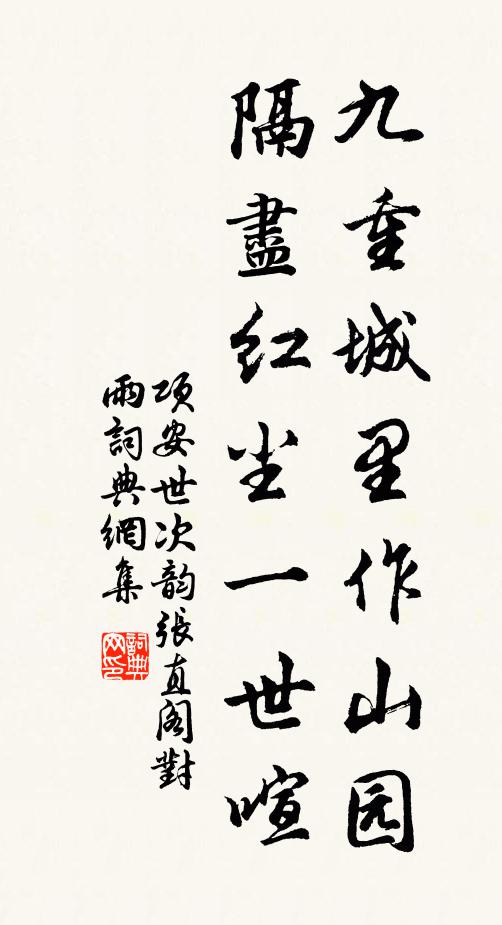 九重城里作山园
隔盡红尘一世喧
项安世次韵張直阁對
雨詞典網集
詞典
网印